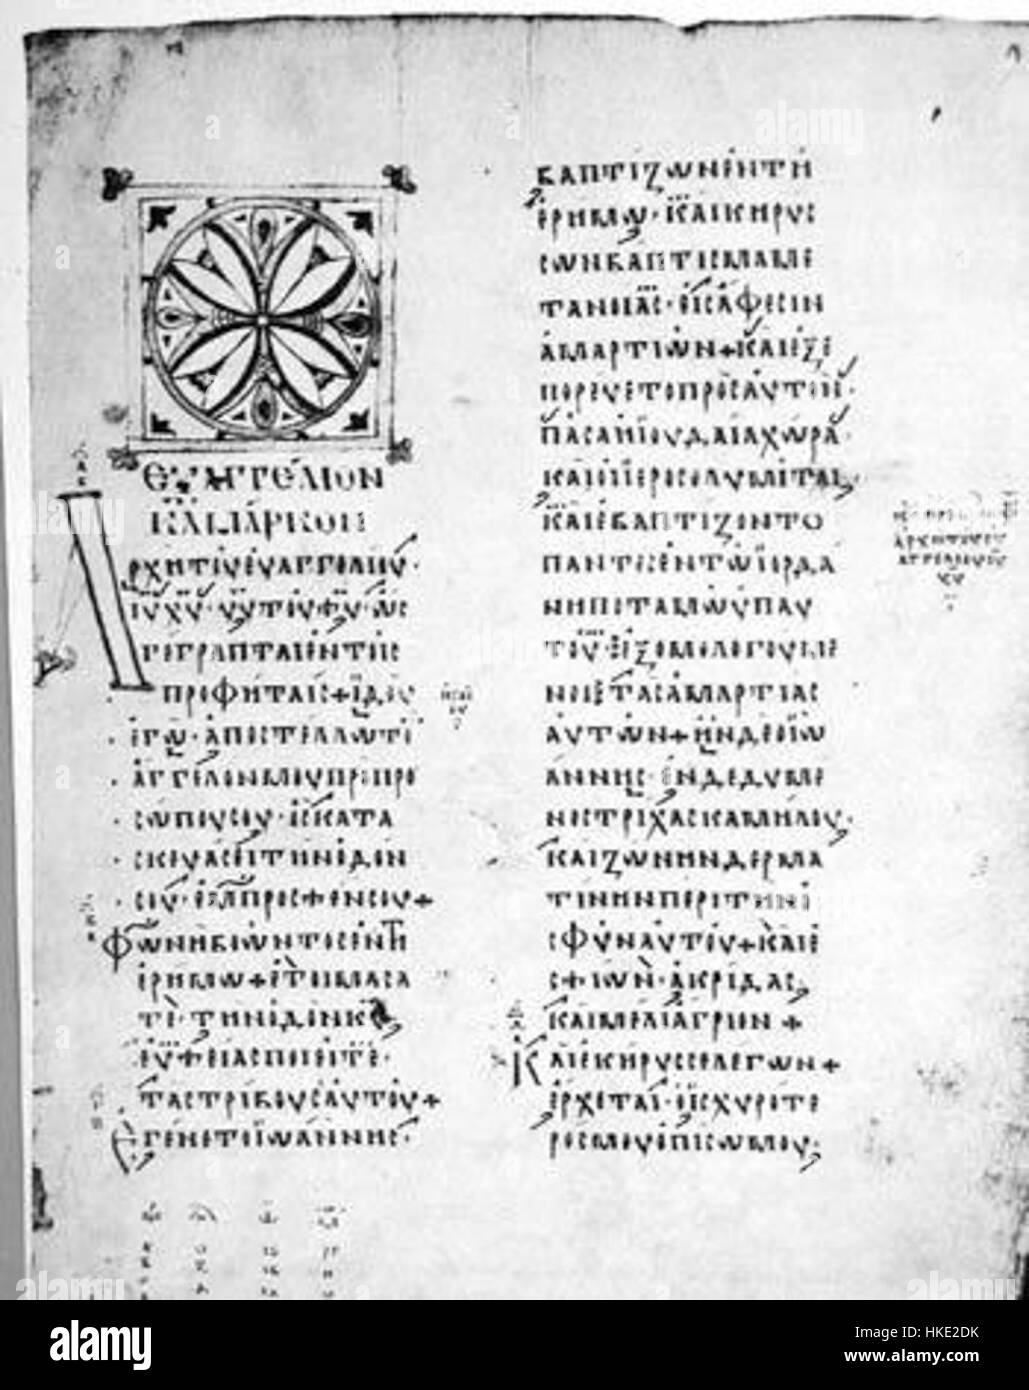 ΕΥΑΓΓΕΛΙΟΝ
ΚΑΤΑ ΜΑΡΚΟΝ
ΑΡΧΗΤΟΥΕΥΑΓΓΕΛΙΟΥ·
ΙΥΧΥ·ΥΥΤΟΥΘΥ·ΩΣ
ΓΕΓΡΑΠΤΑΙΕΝΤΟΙΣ
ΠΡΟΦΗΤΑΙΣ+ΙΔΟΥ
ΕΓΩ·ΑΠΟΣΤΕΛΛΩΤΟ
ΑΓΓΕΛΟΝΜΟΥΠΡΟΠΡΟ
ΣΩΠΟΥΣΟΥ·ΟΣΚΑΤΑ
ΣΚΕΥΑΣΕΙΤΗΝΟΔΟΝ
ΣΟΥ·ΕΜΠΡΟΣΘΕΝΣΟΥ+
ΦΩΝΗΒΟΩΝΤΟΣΕΝΤΗ
ΕΡΗΜΩ+ΕΤΟΙΜΑΣΑ
ΤΕ·ΤΗΝΟΔΟΝΚΥ
ΕΥΘΕΙΑΣΠΟΙΕΙΤΕ·
ΤΑΣΤΡΙΒΟΥΣΑΥΤΟΥ+
ΕΓΕΝΕΤΟΙΩΑΝΝΗΣ·
ΒΑΠΤΙΖΩΝΕΝΤΗ
ΕΡΗΜΩ·ΚΑΙΚΗΡΥΣ
ΣΩΝΒΑΠΤΙΣΜΑΜΕ
ΤΑΝΟΙΑΣ·ΕΙΣΑΦΕΣΙΝ
ΑΜΑΡΤΙΩΝ+ΚΑΙΕΞΕ
ΠΟΡΕΥΕΤΟΠΡΟΣΑΥΤΟΝ·
ΠΑΣΑΗΙΟΥΔΑΙΑΧΩΡΑ·
ΚΑΙΟΙΙΕΡΟΣΟΛΥΜΙΤΑΙ
ΚΑΙΕΒΑΠΤΙΖΟΝΤΟ
ΠΑΝΤΕΣΕΝΤΩΙΟΡΔΑ
ΝΗΠΟΤΑΜΩΥΠΑΥ
ΤΟΥ·ΕΞΟΜΟΛΟΓΟΥΜΕ
ΝΟΙΤΑΣΑΜΑΡΤΙΑΣ
ΑΥΤΩΝ+ΗΝΔΕΟΙΩ
ΑΝΝΗΣ·ΕΝΔΕΔΥΜΕ
ΝΟΣΤΡΙΧΑΣΚΑΜΗΛΟΥ·
ΚΑΙΖΩΝΗΝΔΕΡΜΑ
ΤΙΝΗΝΠΕΡΙΤΗΝΟ
ΣΦΥΝΑΥΤΟΥ+ΚΑΙΕ
ΣΘΙΩΝ·ΑΚΡΙΔΑΣ
ΚΑΙΜΕΛΙΑΓΡΙΟΝ+
ΚΑΙΕΚΗΡΥΣΣΕΛΕΓΩΝ+
ΕΡΧΕΤΑΙ·ΟΙΣΧΥΡΟΤΕ
ΡΟΣΜΟΥΟΠΙΣΩΜΟΥ·
ΑΡΧΗΤΟΥΕΥ
ΑΓΓΕΛΙΟΥΙΟΥ
ΧΥ
alamy
Image ID: HKE2DK
www.alamy.com